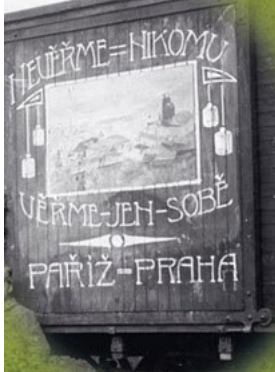 NEVĚŘME=NIKOMU
VĚŘME-JEN-SOBĚ
PAŘÍŽ-PRAHA